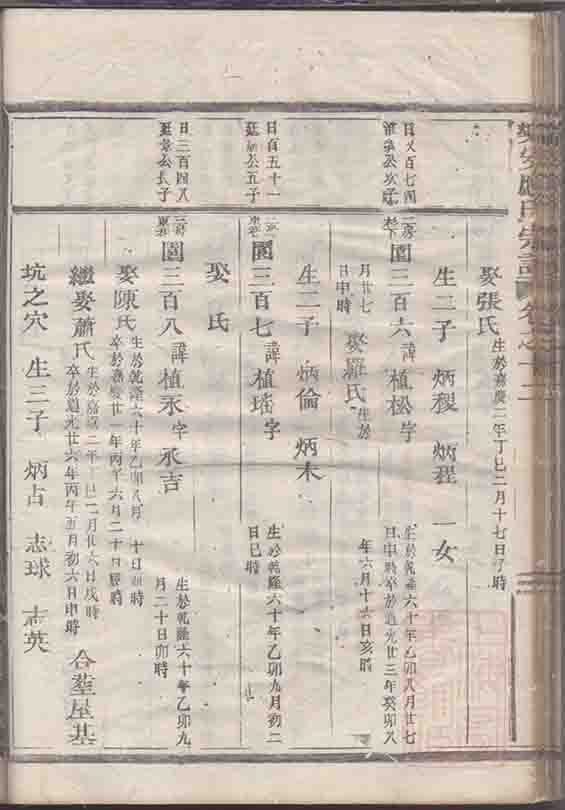 娶張氏 生於嘉慶二年丁巳二月十七日子時
生二子 炳稷 炳程 一女
日文百七四
公次子
園三百六 諱植松字 生於乾隆六十年乙卯八月廿七
日申時卒於道光廿三年癸卯八
月廿七
日申時
娶羅氏 生於
年六月十六日亥時
生二子 炳倫 炳木
日百五十一
公五子
園三百七 諱植瑤字 生於乾隆六十年乙卯九月初二
日巳時
娶 氏
日三百四八
公長子
園三百八 諱植永字永吉 生於乾隆六十年乙卯九
月二十日卯時
娶陳氏 生於乾隆六十年乙卯八月 十日 時
卒於嘉慶廿一年丙子六月二十日辰時
繼娶蕭氏 生於嘉慶二年丁巳 月廿六日戌時
卒於道光廿六年丙午五月初六日申時
合塟屋基
坑之穴 生三子 炳占 志球 志英